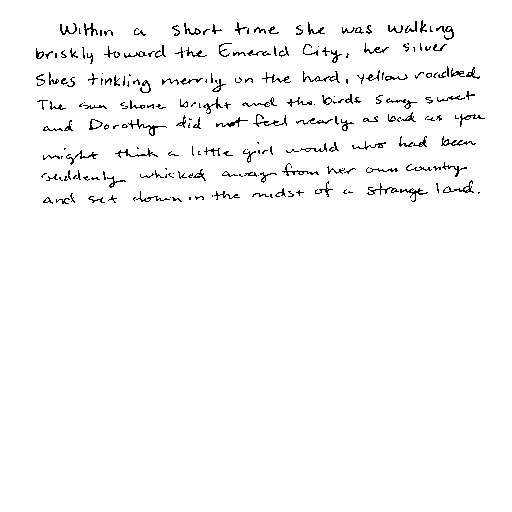 Within a short time she was walking
briskly toward the Emerald City, her silver
Shoes tinkling merrily on the hard, yellow roadbed.
The sun shone bright and the birds sang sweet
and Dorothy did not feel nearly as bad as you
might think a little girl would who had been
suddenly whisked away from her own country
and set down in the midst of a strange land.